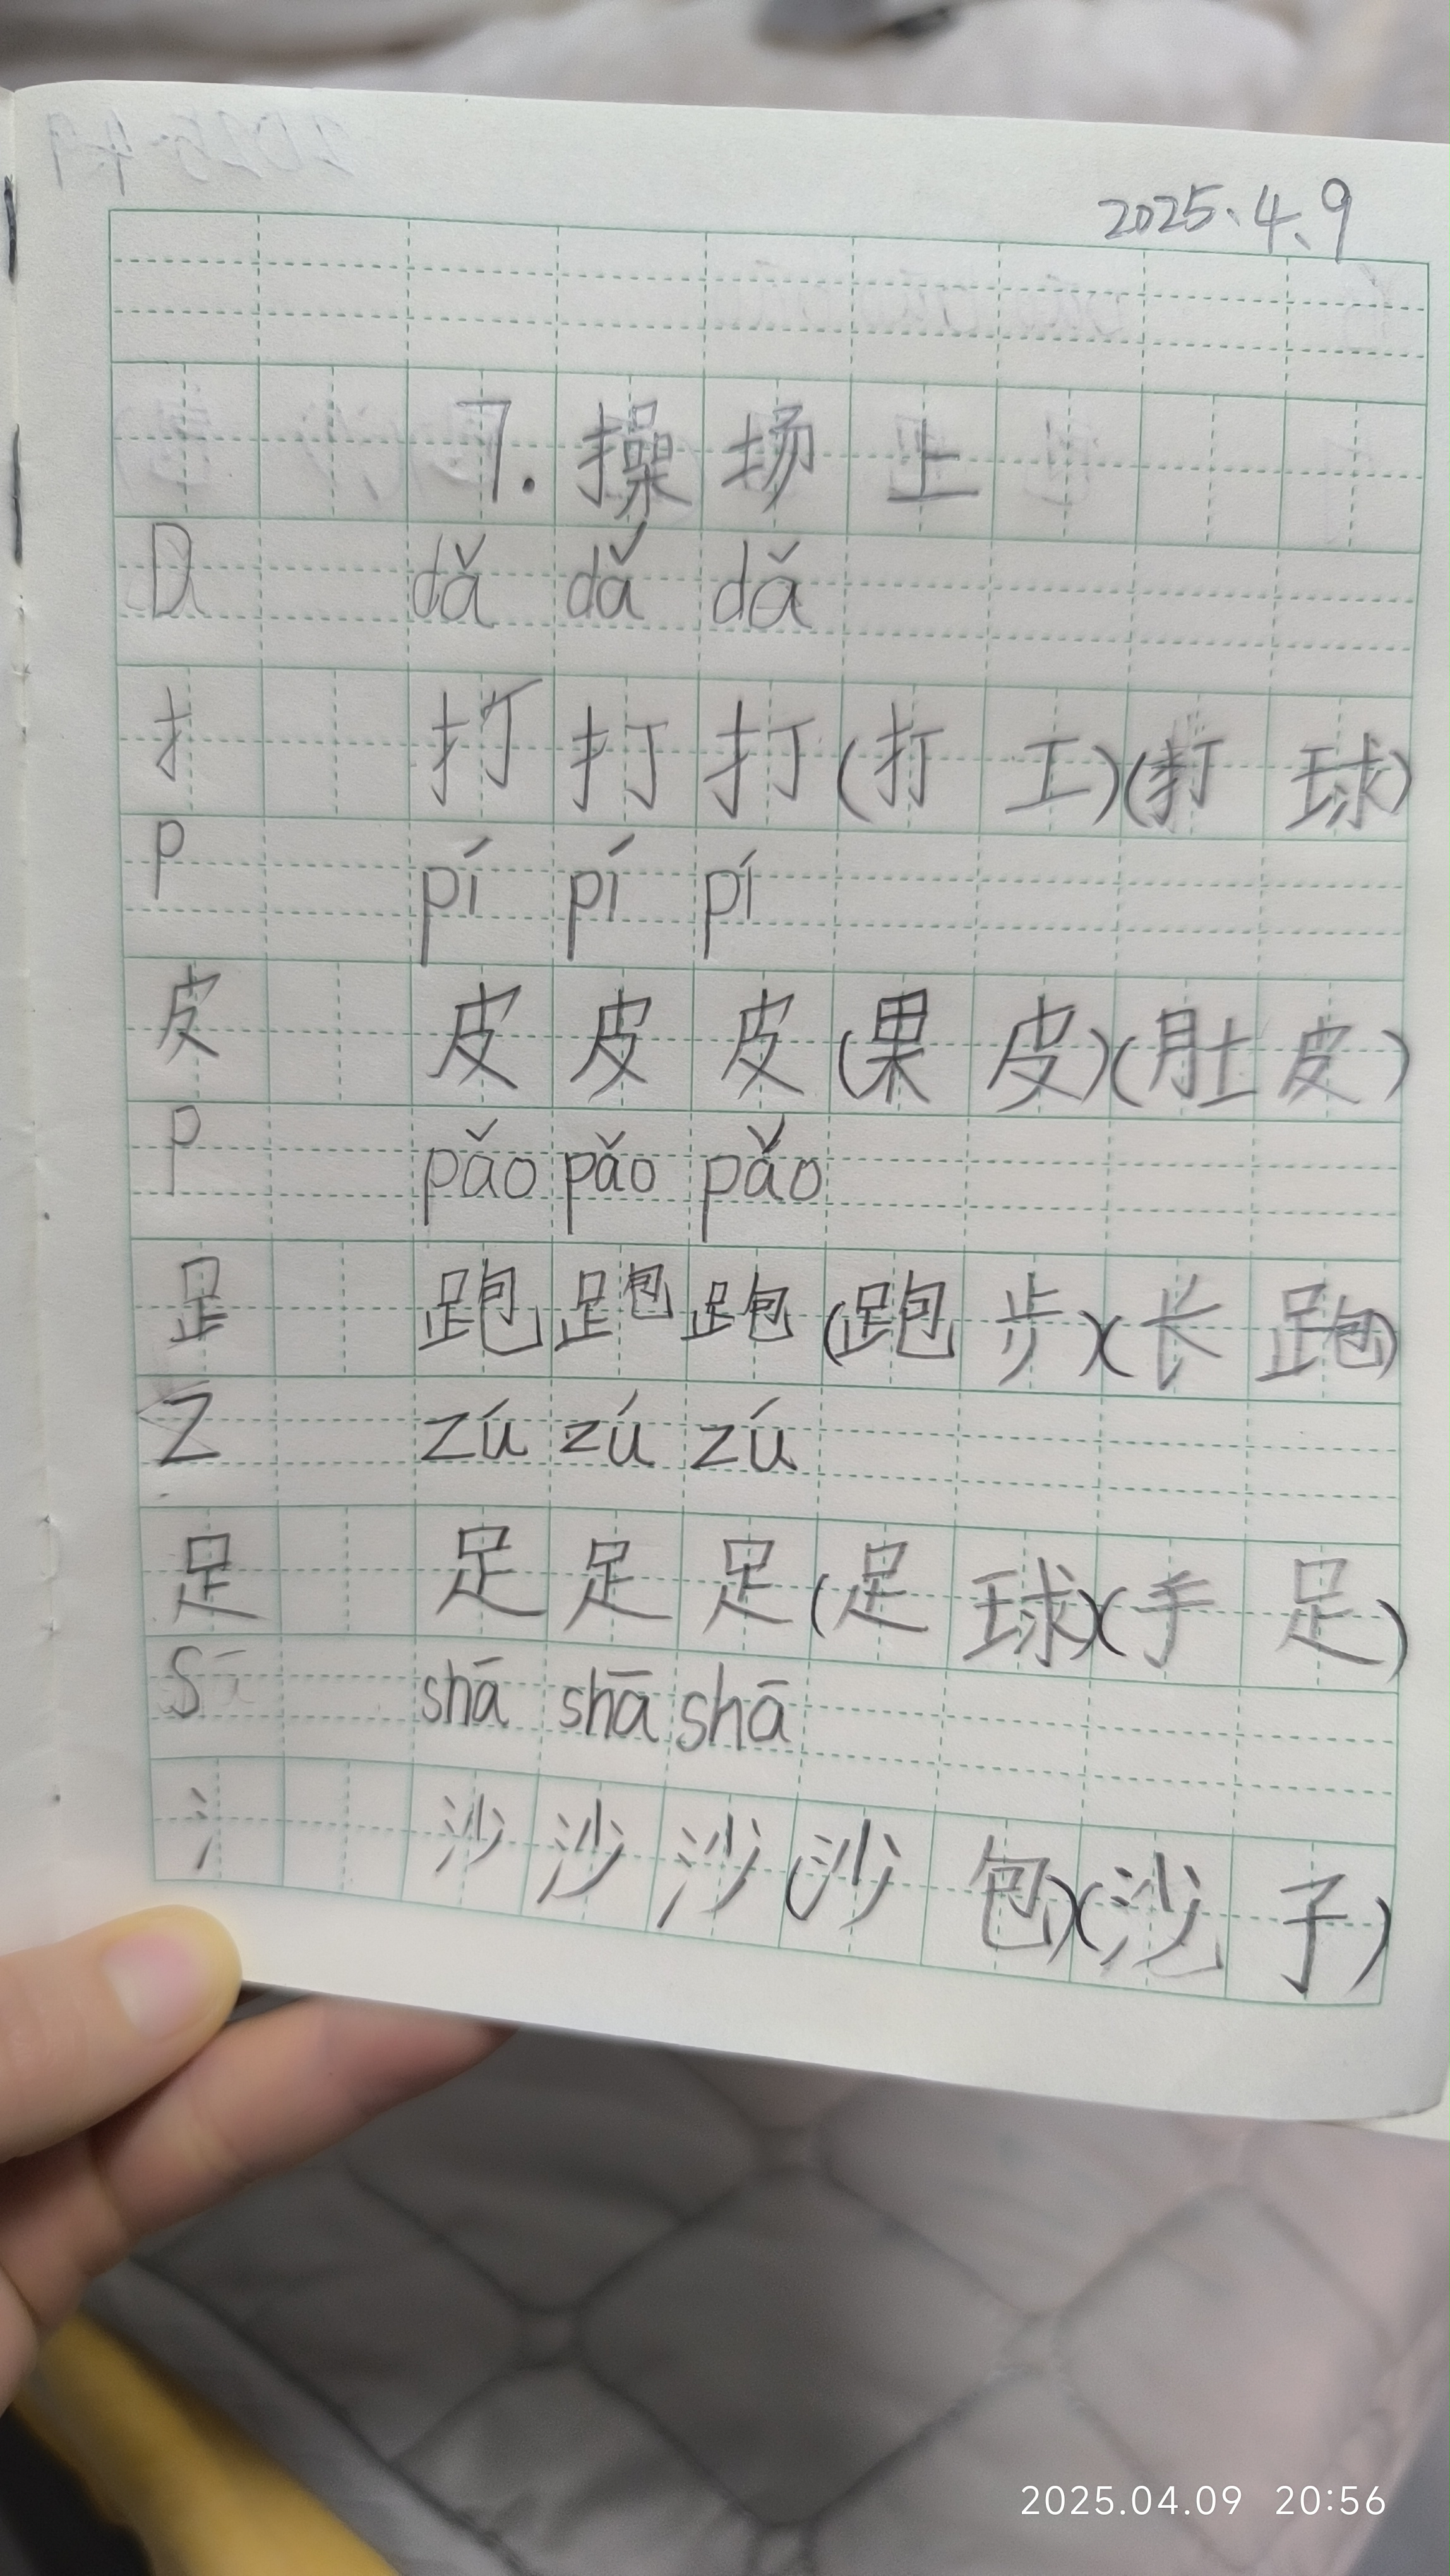 2025.4.9
7.操场上
D dǎ dǎ dǎ
扌 打 打 打(打工)(打球)
P pí pí pí
皮 皮 皮 皮(果皮)(肚皮)
P pǎo pǎo pǎo
𧾷 跑 跑 跑(跑步)(长跑)
Z zú zú zú
足 足 足 足(足球)(手足)
S shā shā shā
氵 沙 沙 沙(沙包)(沙子)
2025.04.09 20:56